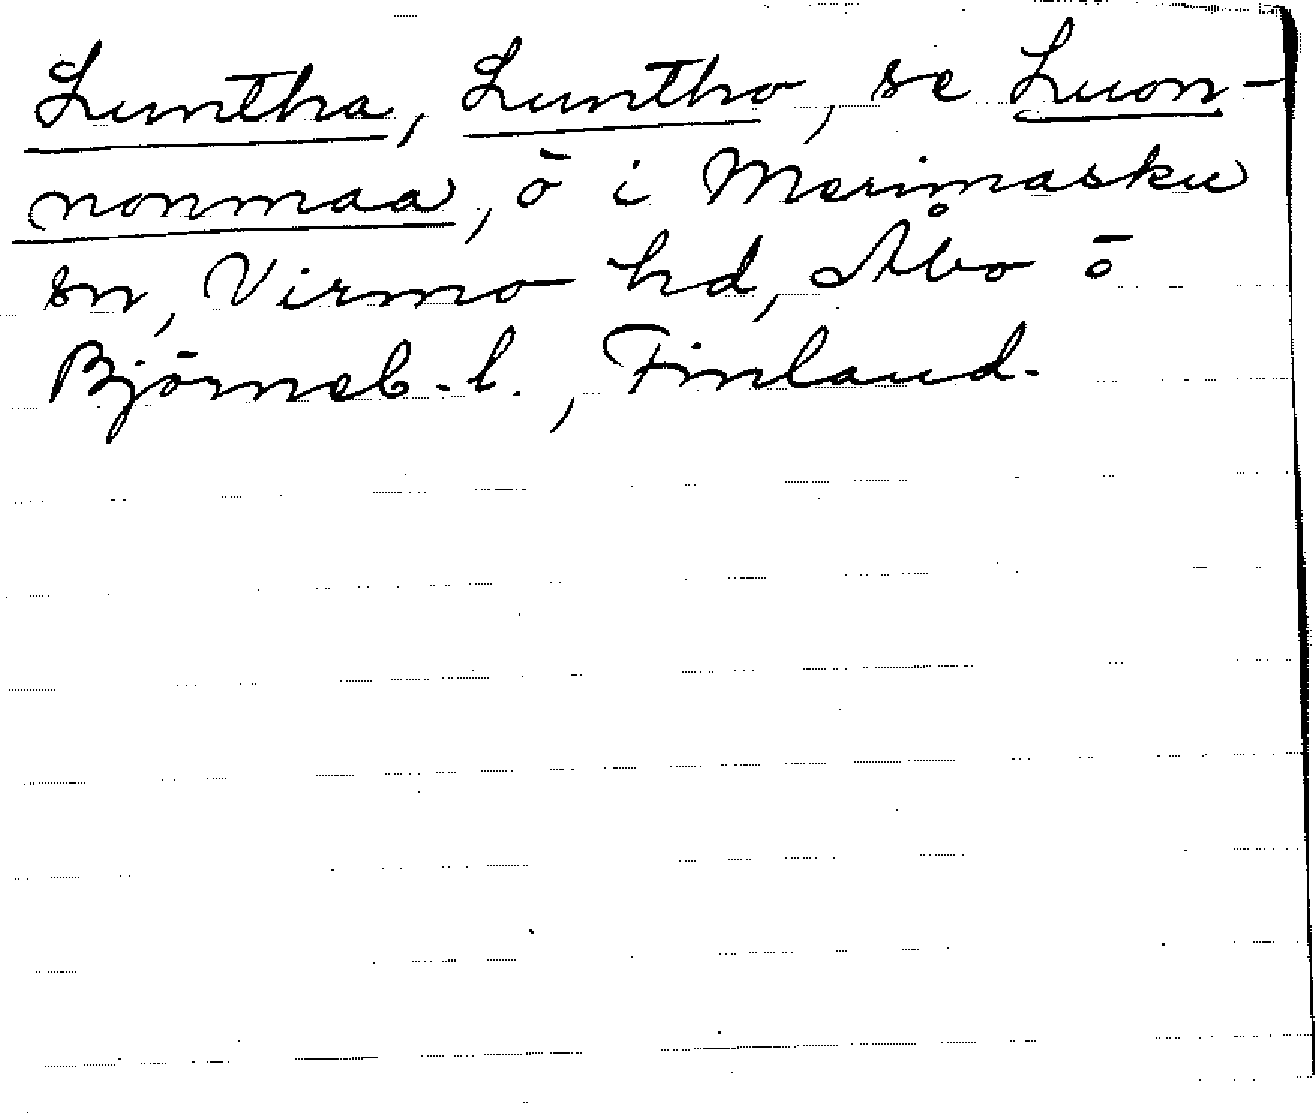 Luntha, Luntho, se Luon-
nonmaa, ö i Merimasku
sn, Virmo hd, Åbo ö
Björneb.-l., Finland.